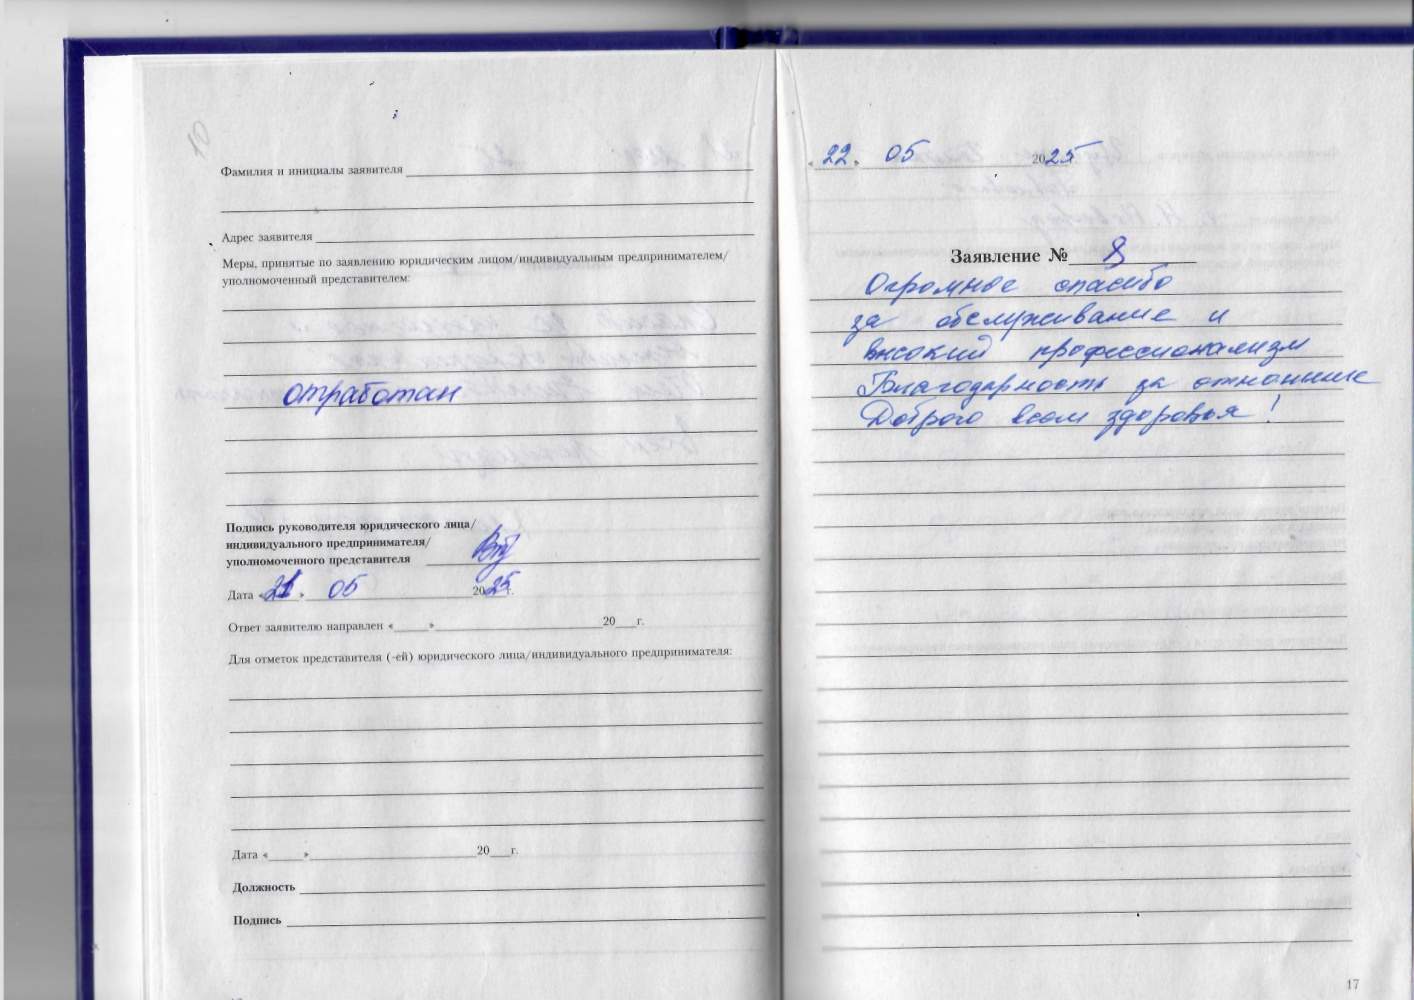 Фамилия и инициалы заявителя
Адрес заявителя
Меры, принятые по заявлению юридическим лицом/индивидуальным предпринимателем/
уполномоченный представителем:
отработан
Подпись руководителя юридического лица/
индивидуального предпринимателя/
уполномоченного представителя
Дата «21» 05 2025 г.
Ответ заявителю направлен «____»____20__г.
Для отметок представителя (-ей) юридического лица/индивидуального предпринимателя:
Дата «____»____20__г.
Должность
Подпись
«22» 05 2025
Заявление № 8
Огромное спасибо
за обслуживание и
высокий профессионализм
Благодарность за отношение
Доброго всем здоровья!
17